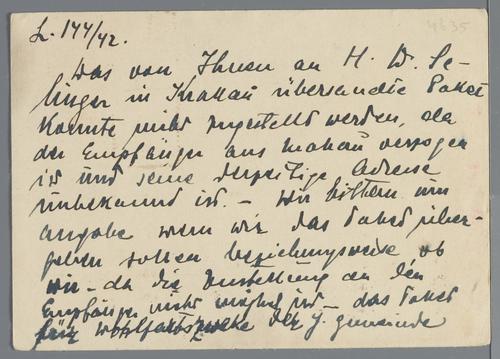 L. 144/42.
4635
Das von Ihnen an H. D. Se-
linger in Krakau übersandte Paket
konnte nicht zugestellt werden, da
der Empfänger aus verzogen
ist und seine derzeitige Adresse
unbekannt ist. - Wir bitten um
angabe wem wir das Paket über-
geben sollen beziehungsweise ob
wir - da die Zustellung an den
Empfänger nicht möglich ist - das Paket
für Wohlfahrtszwecke der J. Gemeinde